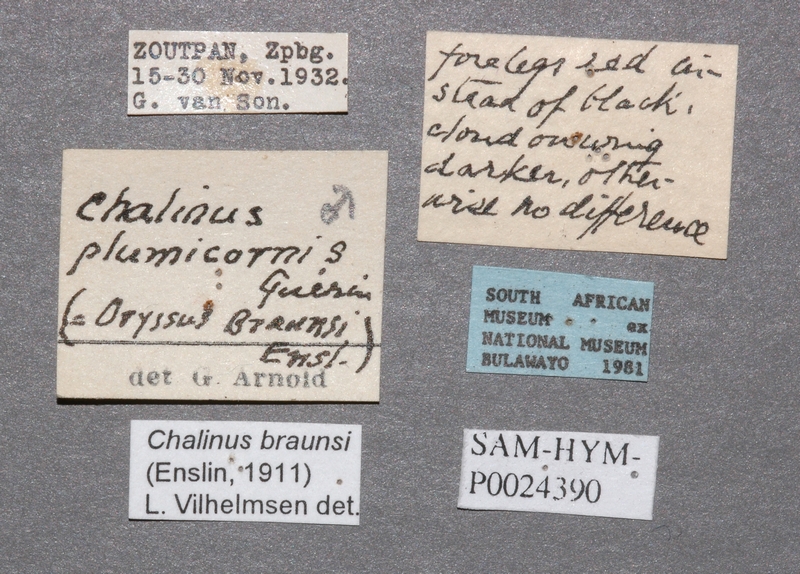 ZOUTPAN, Zpbg.
15-30 Nov.1932.
G. van Son.
forelegs red in-
stead of black,
cloud on wing
darker, other-
wise no difference
Chalinus ♂
plumicornis
Guérin
(= Oryssus Braunsi
Ensl.)
det G. Arnold
SOUTH AFRICAN
MUSEUM ex
NATIONAL MUSEUM
BULAWAYO 1981
Chalinus braunsi
(Enslin, 1911)
L. Vilhelmsen det.
SAM-HYM-
P0024390